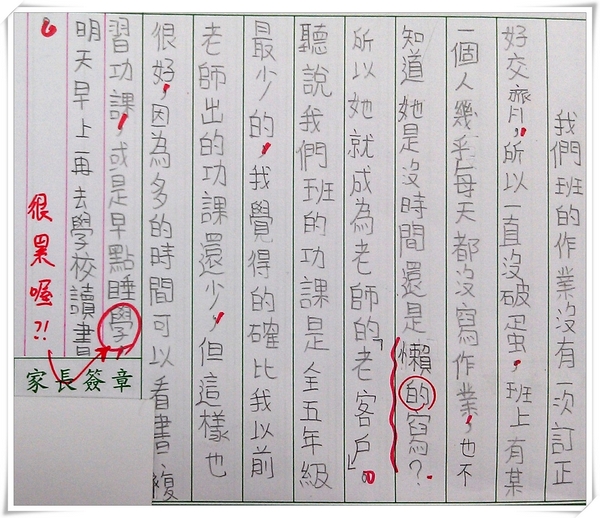 我們班的作業沒有一次訂正
好交齊,所以一直沒破蛋,班上有某
一個人幾乎每天都沒寫作業,也不
知道她是沒時間還是懶的寫?
所以她就成為老師的「老客戶」。
聽說我們班的功課是全五年級
最少的,我覺得的確比我以前
老師出的功課還少,但這樣也
很好,因為多的時間可以看書、複
習功課,或是早點睡學,
明天早上再去學校讀書
。
很累喔?!
家長簽章